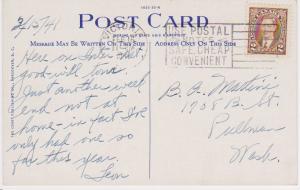 2/15/41
POST CARD
MESSAGE MAY BE WRITTEN ON THIS SIDE
ADDRESS ONLY ON THIS SIDE
POSTAL
SAFE, CHEAP
CONVENIENT
2
Here on
good-will tour.
Just another week
end not at
home - in fact I've
only had one so
far this year.
Leon
B. A.
1708 B. St.
Pullman
Wash.